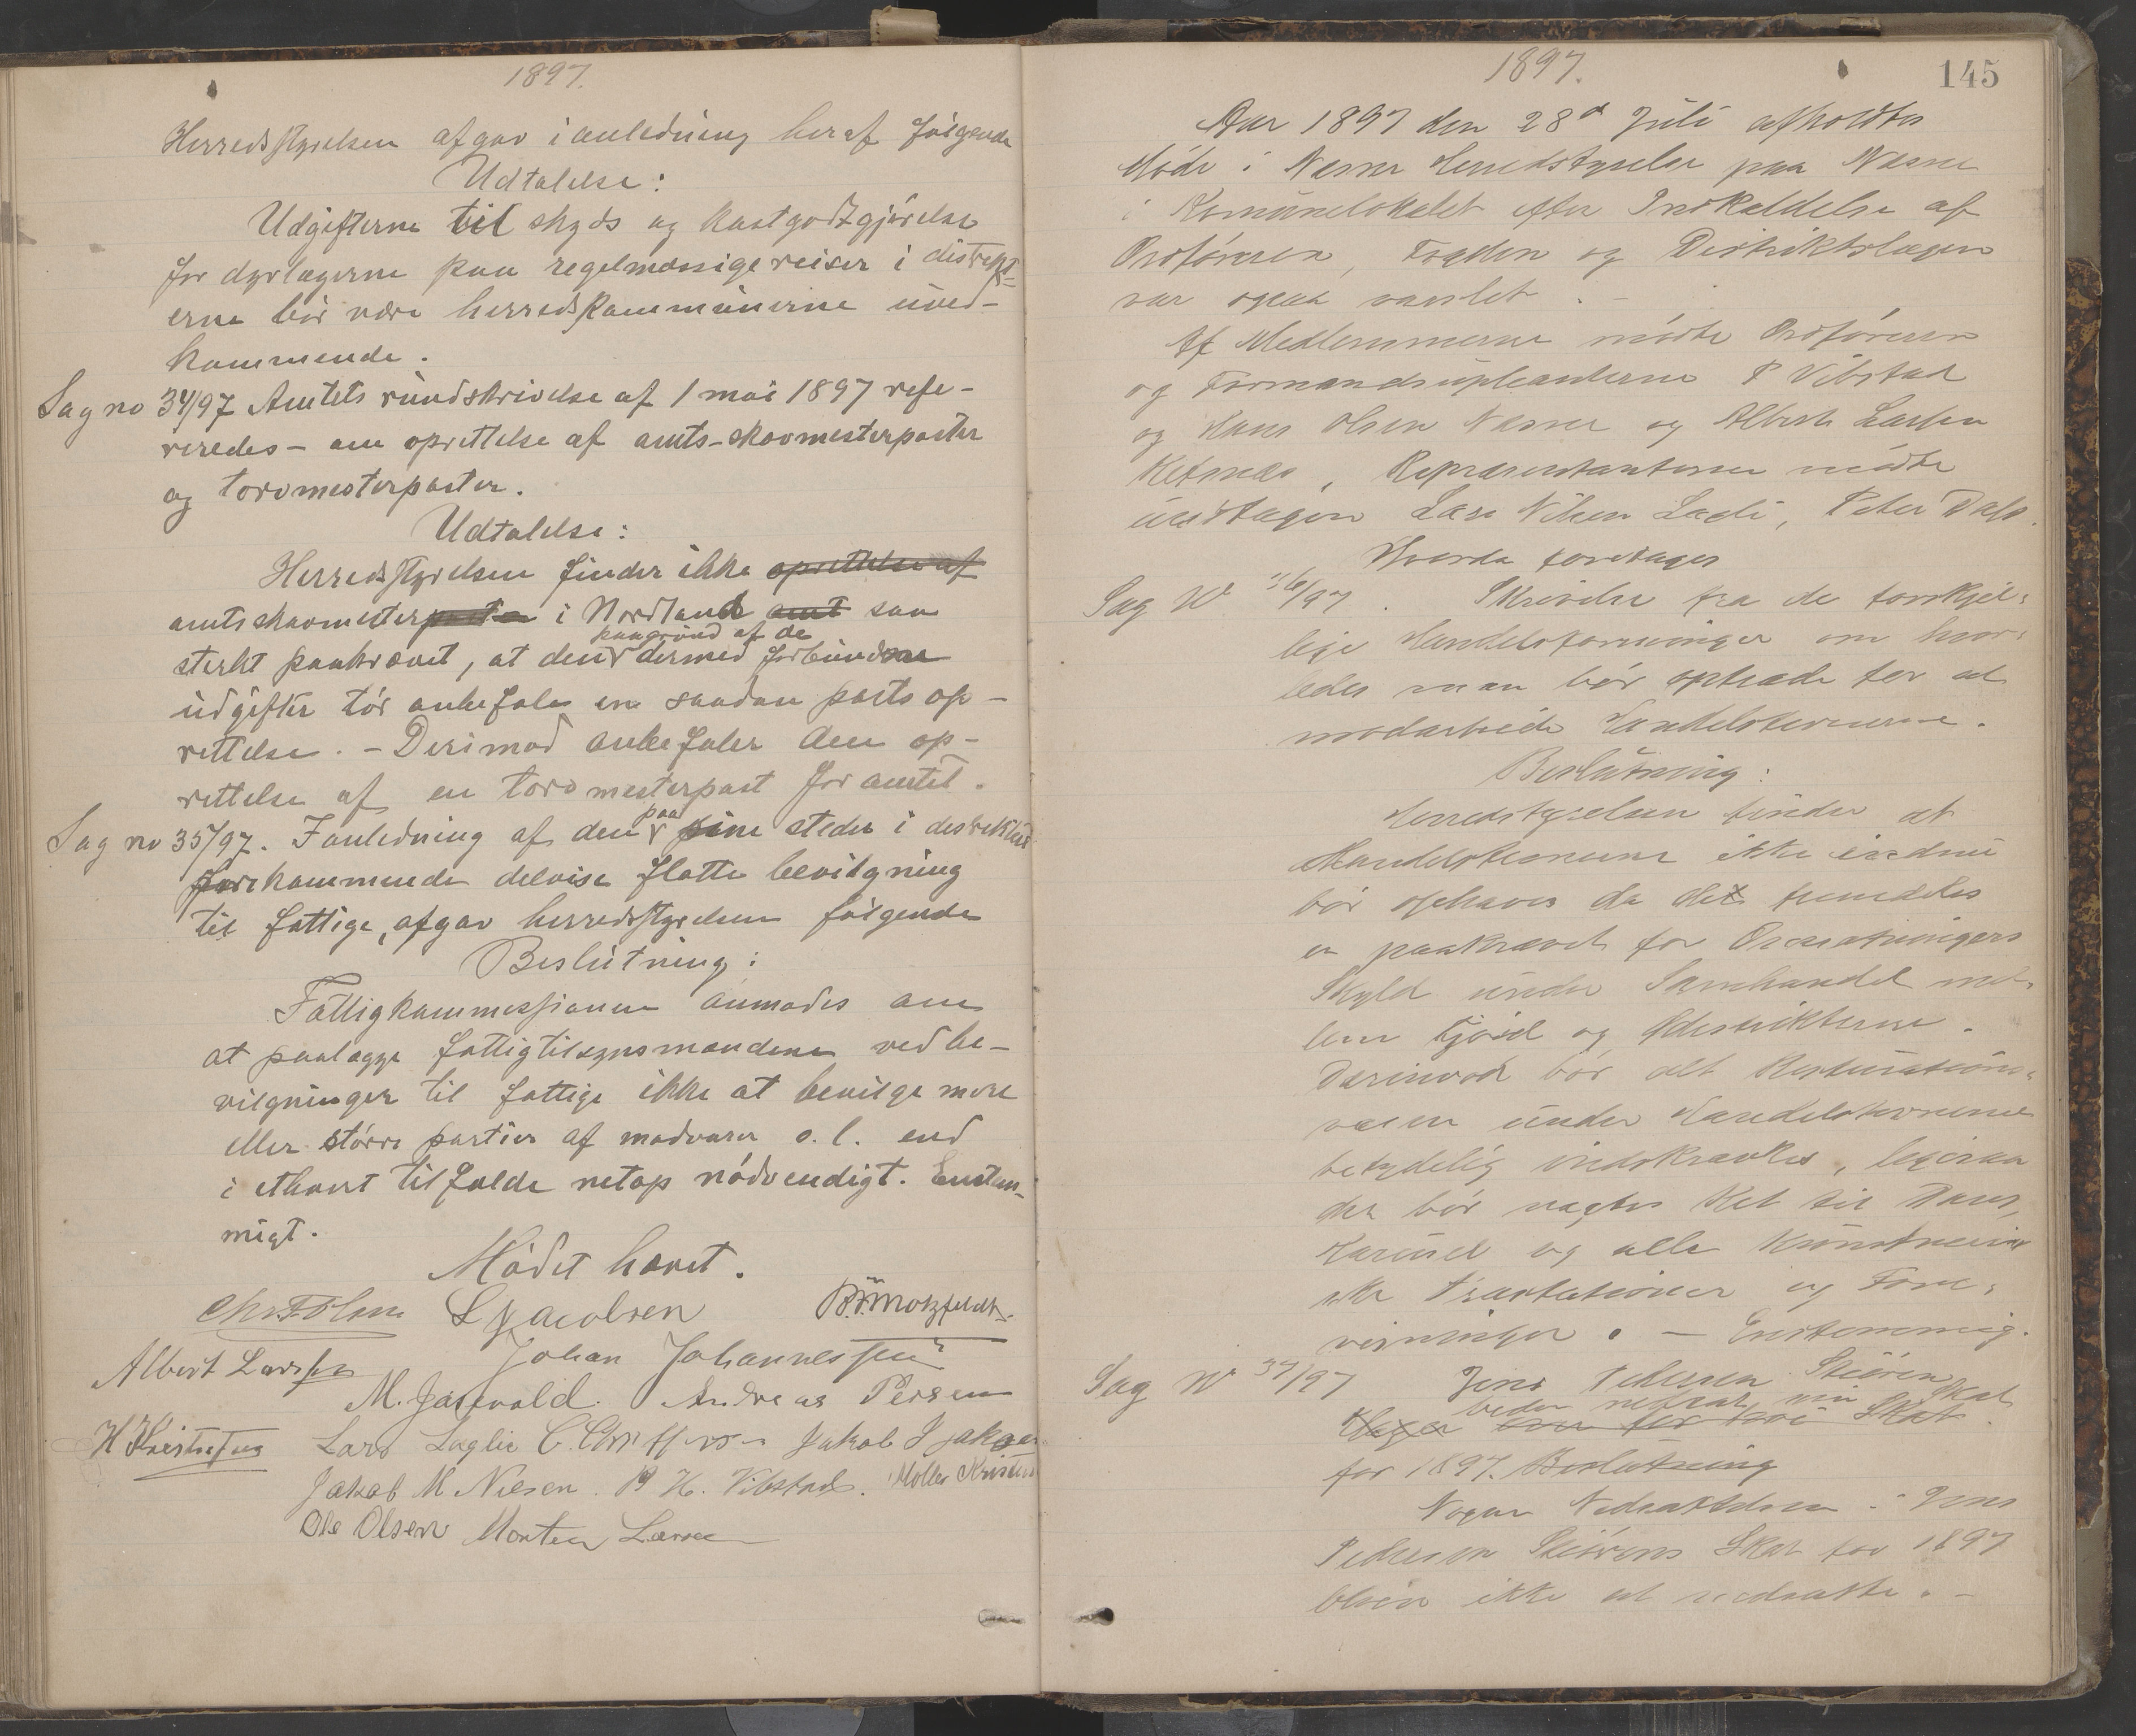 1897.
Herredsstyrelsen afgav i anledning heraf følgende
Udtalelse:
Udgifterne til skyds og kostgodtgjørelse
for dyrlægerne paa regelmæssige reiser i distrikt-
erne bør være herredskommunerne uved-
kommende.
Sag no 34/97 Amtets rundskrivelse af 1 mai 1897 refe-
reredes - om oprettelse af amts-skovmesterposter
og torvmesterposter.
Udtalelse:
Herredsstyrelsen finder ikke oprettelse af
amtsskovmesterposter i Nordland amt saa
sterkt paakrævet, at den paagrund af de dermed forbundne
udgifter tør anbefale en saadan posts op-
rettelse. - Derimod anbefaler den op-
rettelse af en torvmesterpost for amtet.
Sag no 35/97. I anledning af den paa sine steder i distriktet
forekommende delvise flotte bevilgning
til fattige, afgav herredsstyrelsen følgende
Beslutning:
Fattigkommissionen anmodes om
at paalægge fattigtilsynsmændene ved be-
vilgninger til fattige ikke at bevilge mere
eller større partier af madvarer o.l. end
i ethvert tilfælde netop nødvendigt. Enstem-
migt.
Mødet hævet.
Chr. F. Olsen L Jacobsen P. F. Motzfeldt
Albert Larssen Johan Johannessen
M. Jastvold. Andreas Persen
H Kristensen Lars Laglie Jakob J Jakobsen
Jakob M Nilsen. P H. Vibstad. Møller Kristensen
Ole Olsen Morten Larsen
1897.
145
Aar 1897 den 28d Juli afholdtes
Møde i Næsne Herredstyrelse paa Næsne
i Komunelokalet efter Indkaldelse af
Ordføreren, Fogden og Distriktslægen
var ogsaa varslet. -
Af Medlemmerne mødte Ordføreren
og Formandsupleanterne P Vibstad
og Hans Olsen Næsne og Albert Larsen
, Repræsentanterne mødte
undtagen Lars Nilsen , Peter Dass.
Hvorda foretages
Sag No 36/97. Skrivelse fra de forskjel-
lige Handelsforeninger om hvor-
ledes man bør optræde for at
modarbeide Handelsstevnerne.
Beslutning:
Herredstyrelsen finder at
Handelsstevnerne ikke endnu
bør ophæves da det fremdeles
er paakrævet for Omsætningens
Skyld under Samhandel mel-
lem Fjord og Ødistrikterne.
Derimod bør alt Restaurations-
væsen under Handelsstevnerne
betydelig indskrænkes, ligesaa
der bør nægtes Ret til Dans,
Karusel og alle
ske Præstationer og Fore-
visninger. - Enstemmig.
Sag No 37/97 Jens Pedersen Skjæren
beder nedsat sin Skat
for 1897. Beslutning
Nogen Nedsættelse i Jens
Pedersen Skjærens Skat for 1897
bliver ikke at nedsætte. -